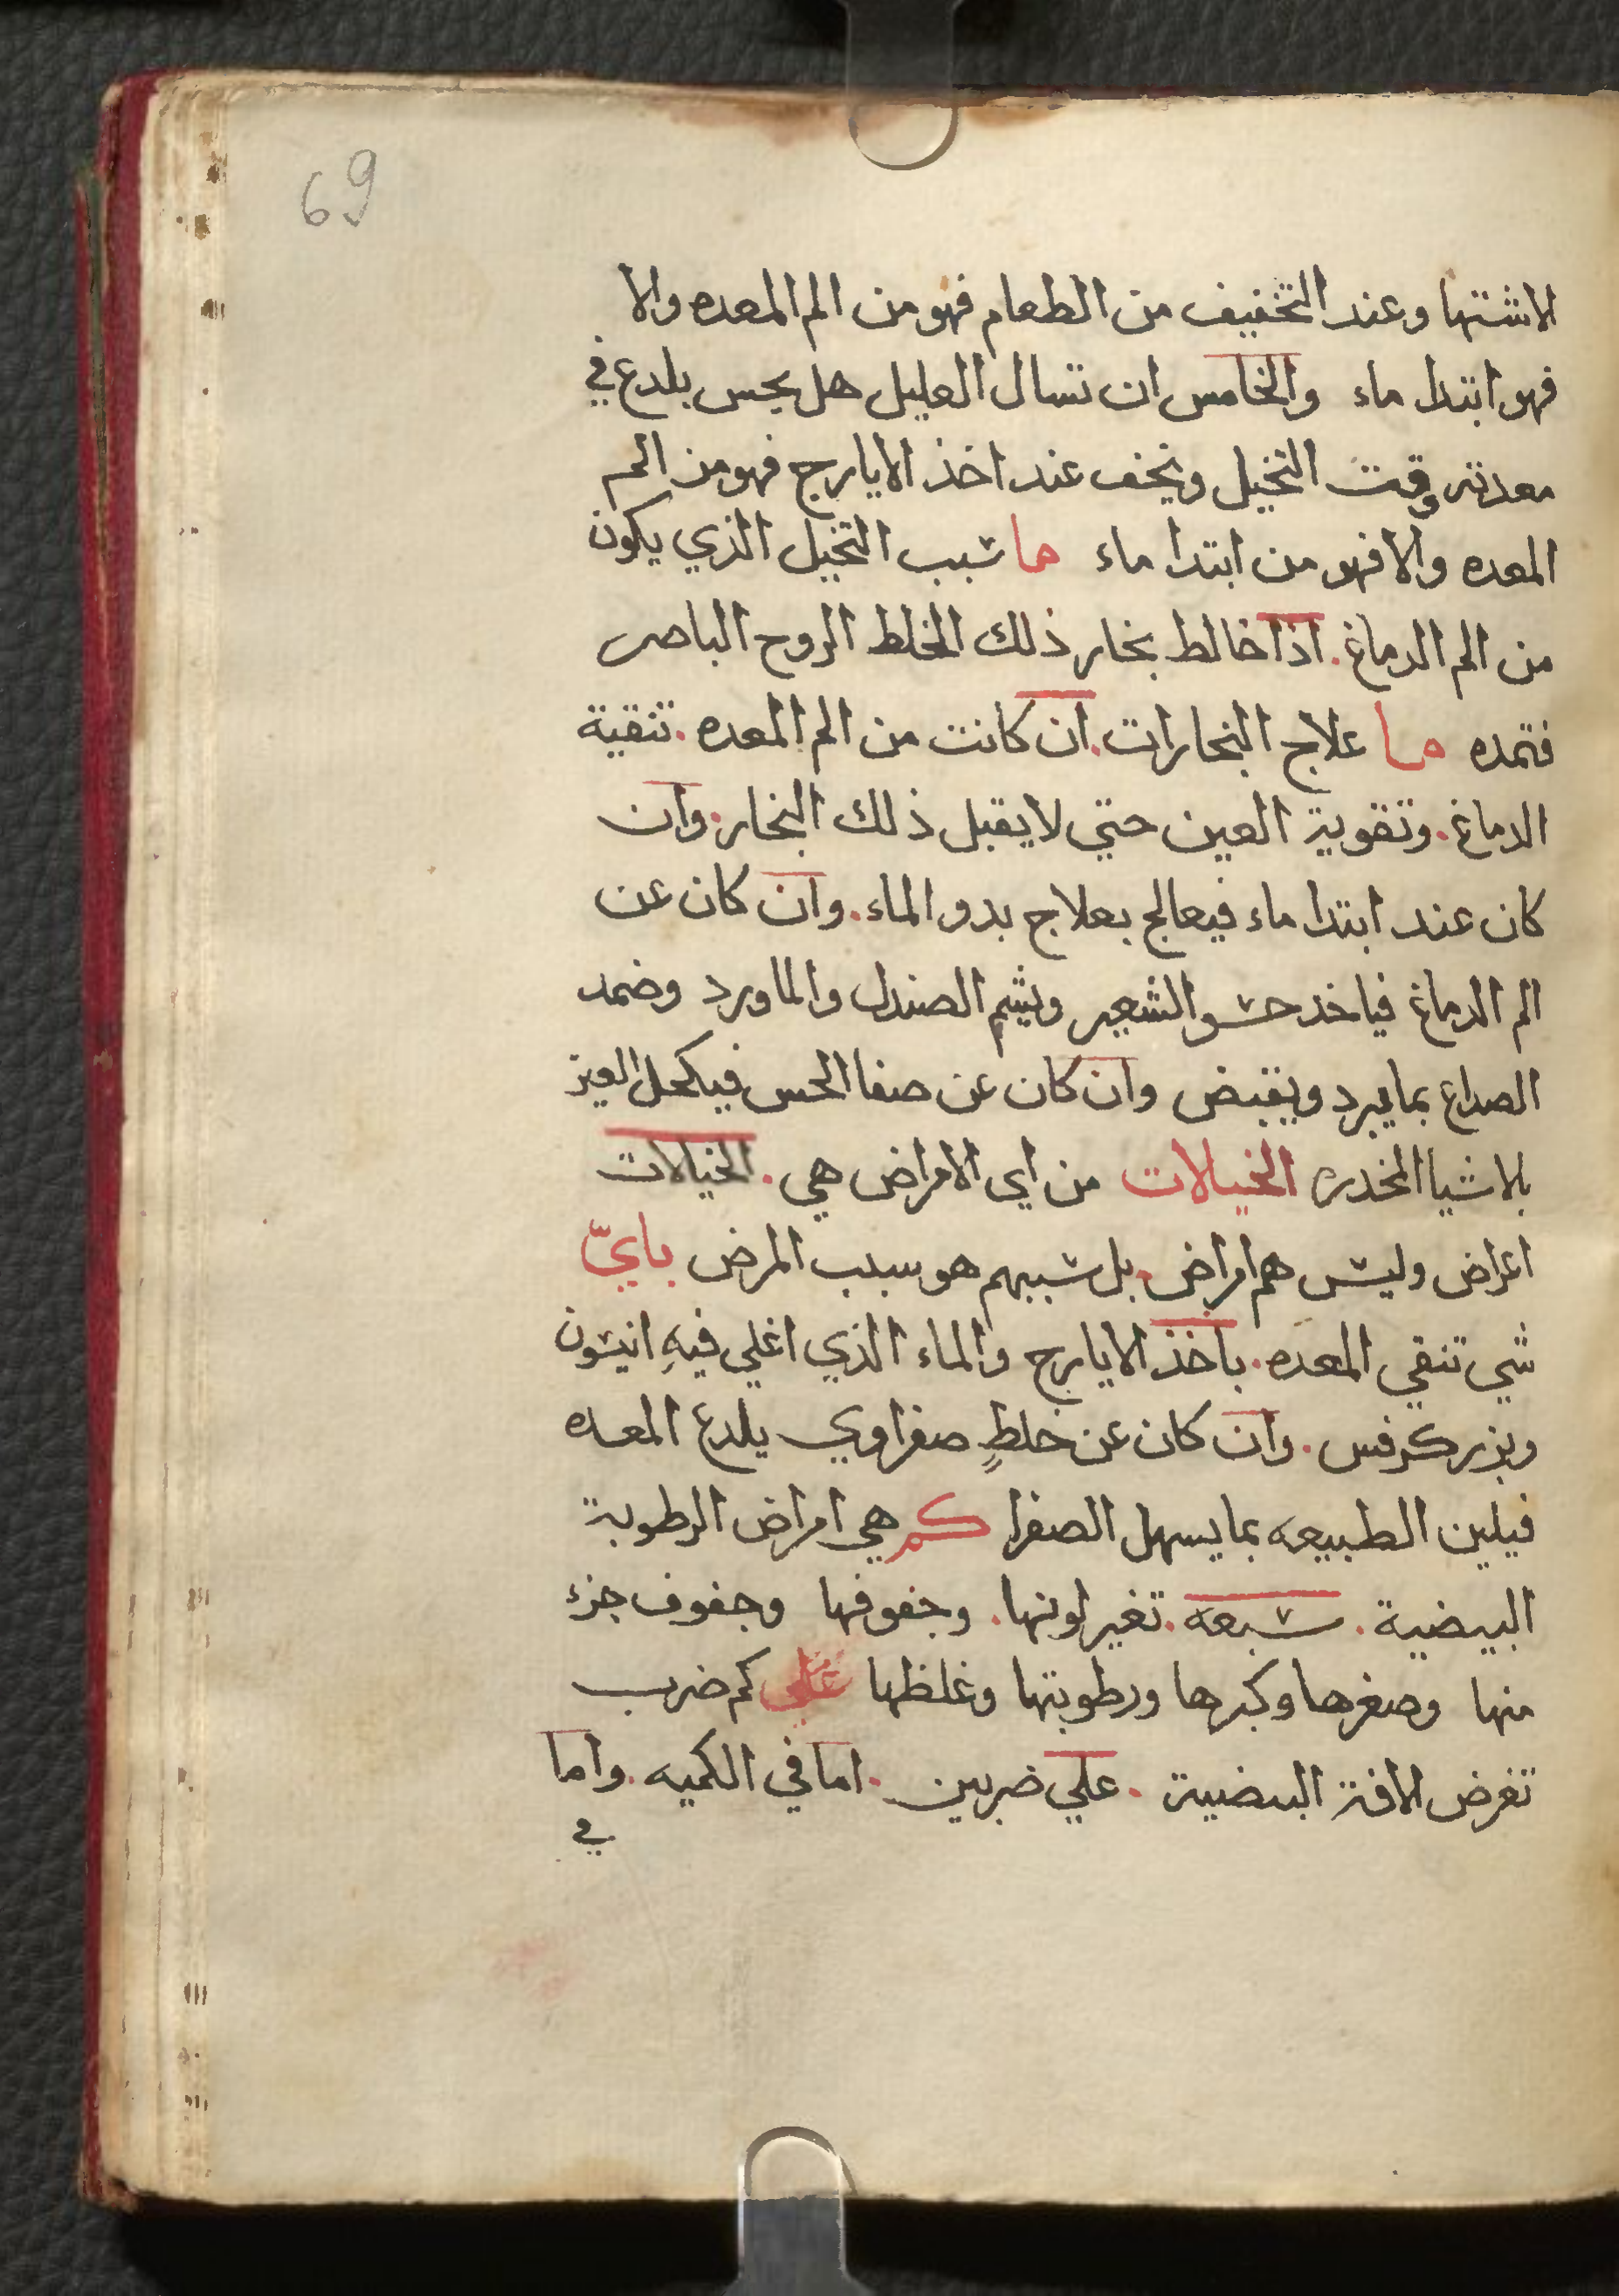 69
الاشتها وعند التخفيف من الطعام فهو من الم المعده والا
فهو ابتدا ماء والخامس ان تسال العليل هل يحس بلدع في
معدته وقت التخيل ويخف عند اخذ الايارج فهو من الم
المعده والا فهو من ابتدا ماء ما سبب التخيل الذي يكون
من الم الدماغ. اذا خالط بخار ذلك الخلط الروح الباصر
فتمده ما علاج البخارات. ان كانت من الم المعده. تنقية
الدماغ. وتقوية العين حتي لا يقبل ذلك البخار. وان
كان عند ابتدا ماء فيعالج بعلاج بدو الماء. وان كان عن
الم الدماغ فياخد حسو الشعير ويشم الصندل والماورد وضمد
الصداع بما يبرد ويقبض وان كان عن صفا الحس فيكحل العين
بلاشيا المخدره الخيالات من اي الامراض هي. الخيالات
اعراض وليس هم امراض. بل سببهم هو سبب المرض بايّ
شي تنقي المعده. باخذ الايارج والماء الذي اغلي فيهِ انيسون
وبزر كرفس. وان كان عن خلطٍ صفراوي يلدع المعده
فيلين الطبيعه بما يسهل الصفرا كم هي امراض الرطوبة
البيضية. سبعه. تغير لونها. وجفوفها وجفوف جزء
منها وصغرها وكبرها ورطوبتها وغلظها علي كم ضرب
تعرض الافة البيضية. علي ضربين. اما في الكميه. واما
في